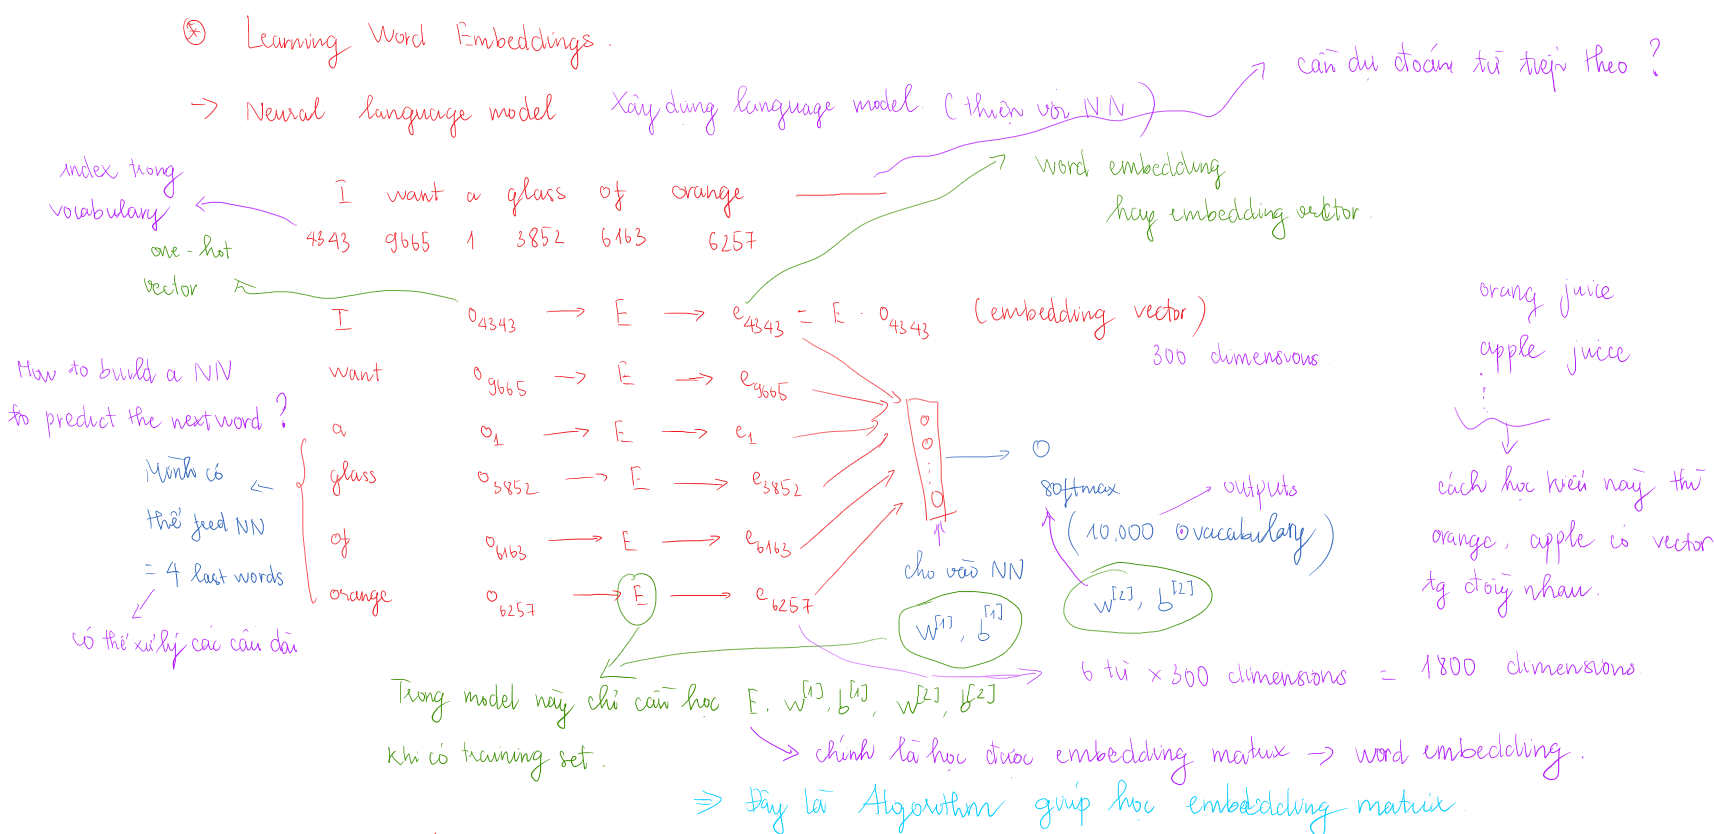 ⊛ Learning Word Embeddings.
→ Neural language model Xây dựng language model. (thiên với NN)
cần dự đoán từ tiếp theo?
index trong
vocabulary
I want a glass of orange ——
4343 9665 1 3852 6163 6257
word embedding
hay embedding vector.
one-hot
vector
I o4343 → E → e4343 = E · o4343 (embedding vector)
300 dimensions
want o9665 → E → e9665
a o1 → E → e1
glass o3852 → E → e3852
of o6163 → E → e6163
orange o6257 → E → e6257
How to build a NN
to predict the next word?
Mình có
thể feed NN
= 4 last words
có thể xử lý các câu dài
cho vào NN
w[1], b[1]
softmax
→ outputs
(10,000 vacabulary)
w[2], b[2]
orang juice
apple juice
cách học kiểu này thì
orange, apple có vector
tg đồng nhau.
6 từ × 300 dimensions = 1800 dimensions
Trong model này chỉ cần học E, w[1], b[1], w[2], b[2]
khi có training set.
→ chính là học được embedding matrix → word embedding.
⇒ Đây là Algorithm giúp học embedding matrix.